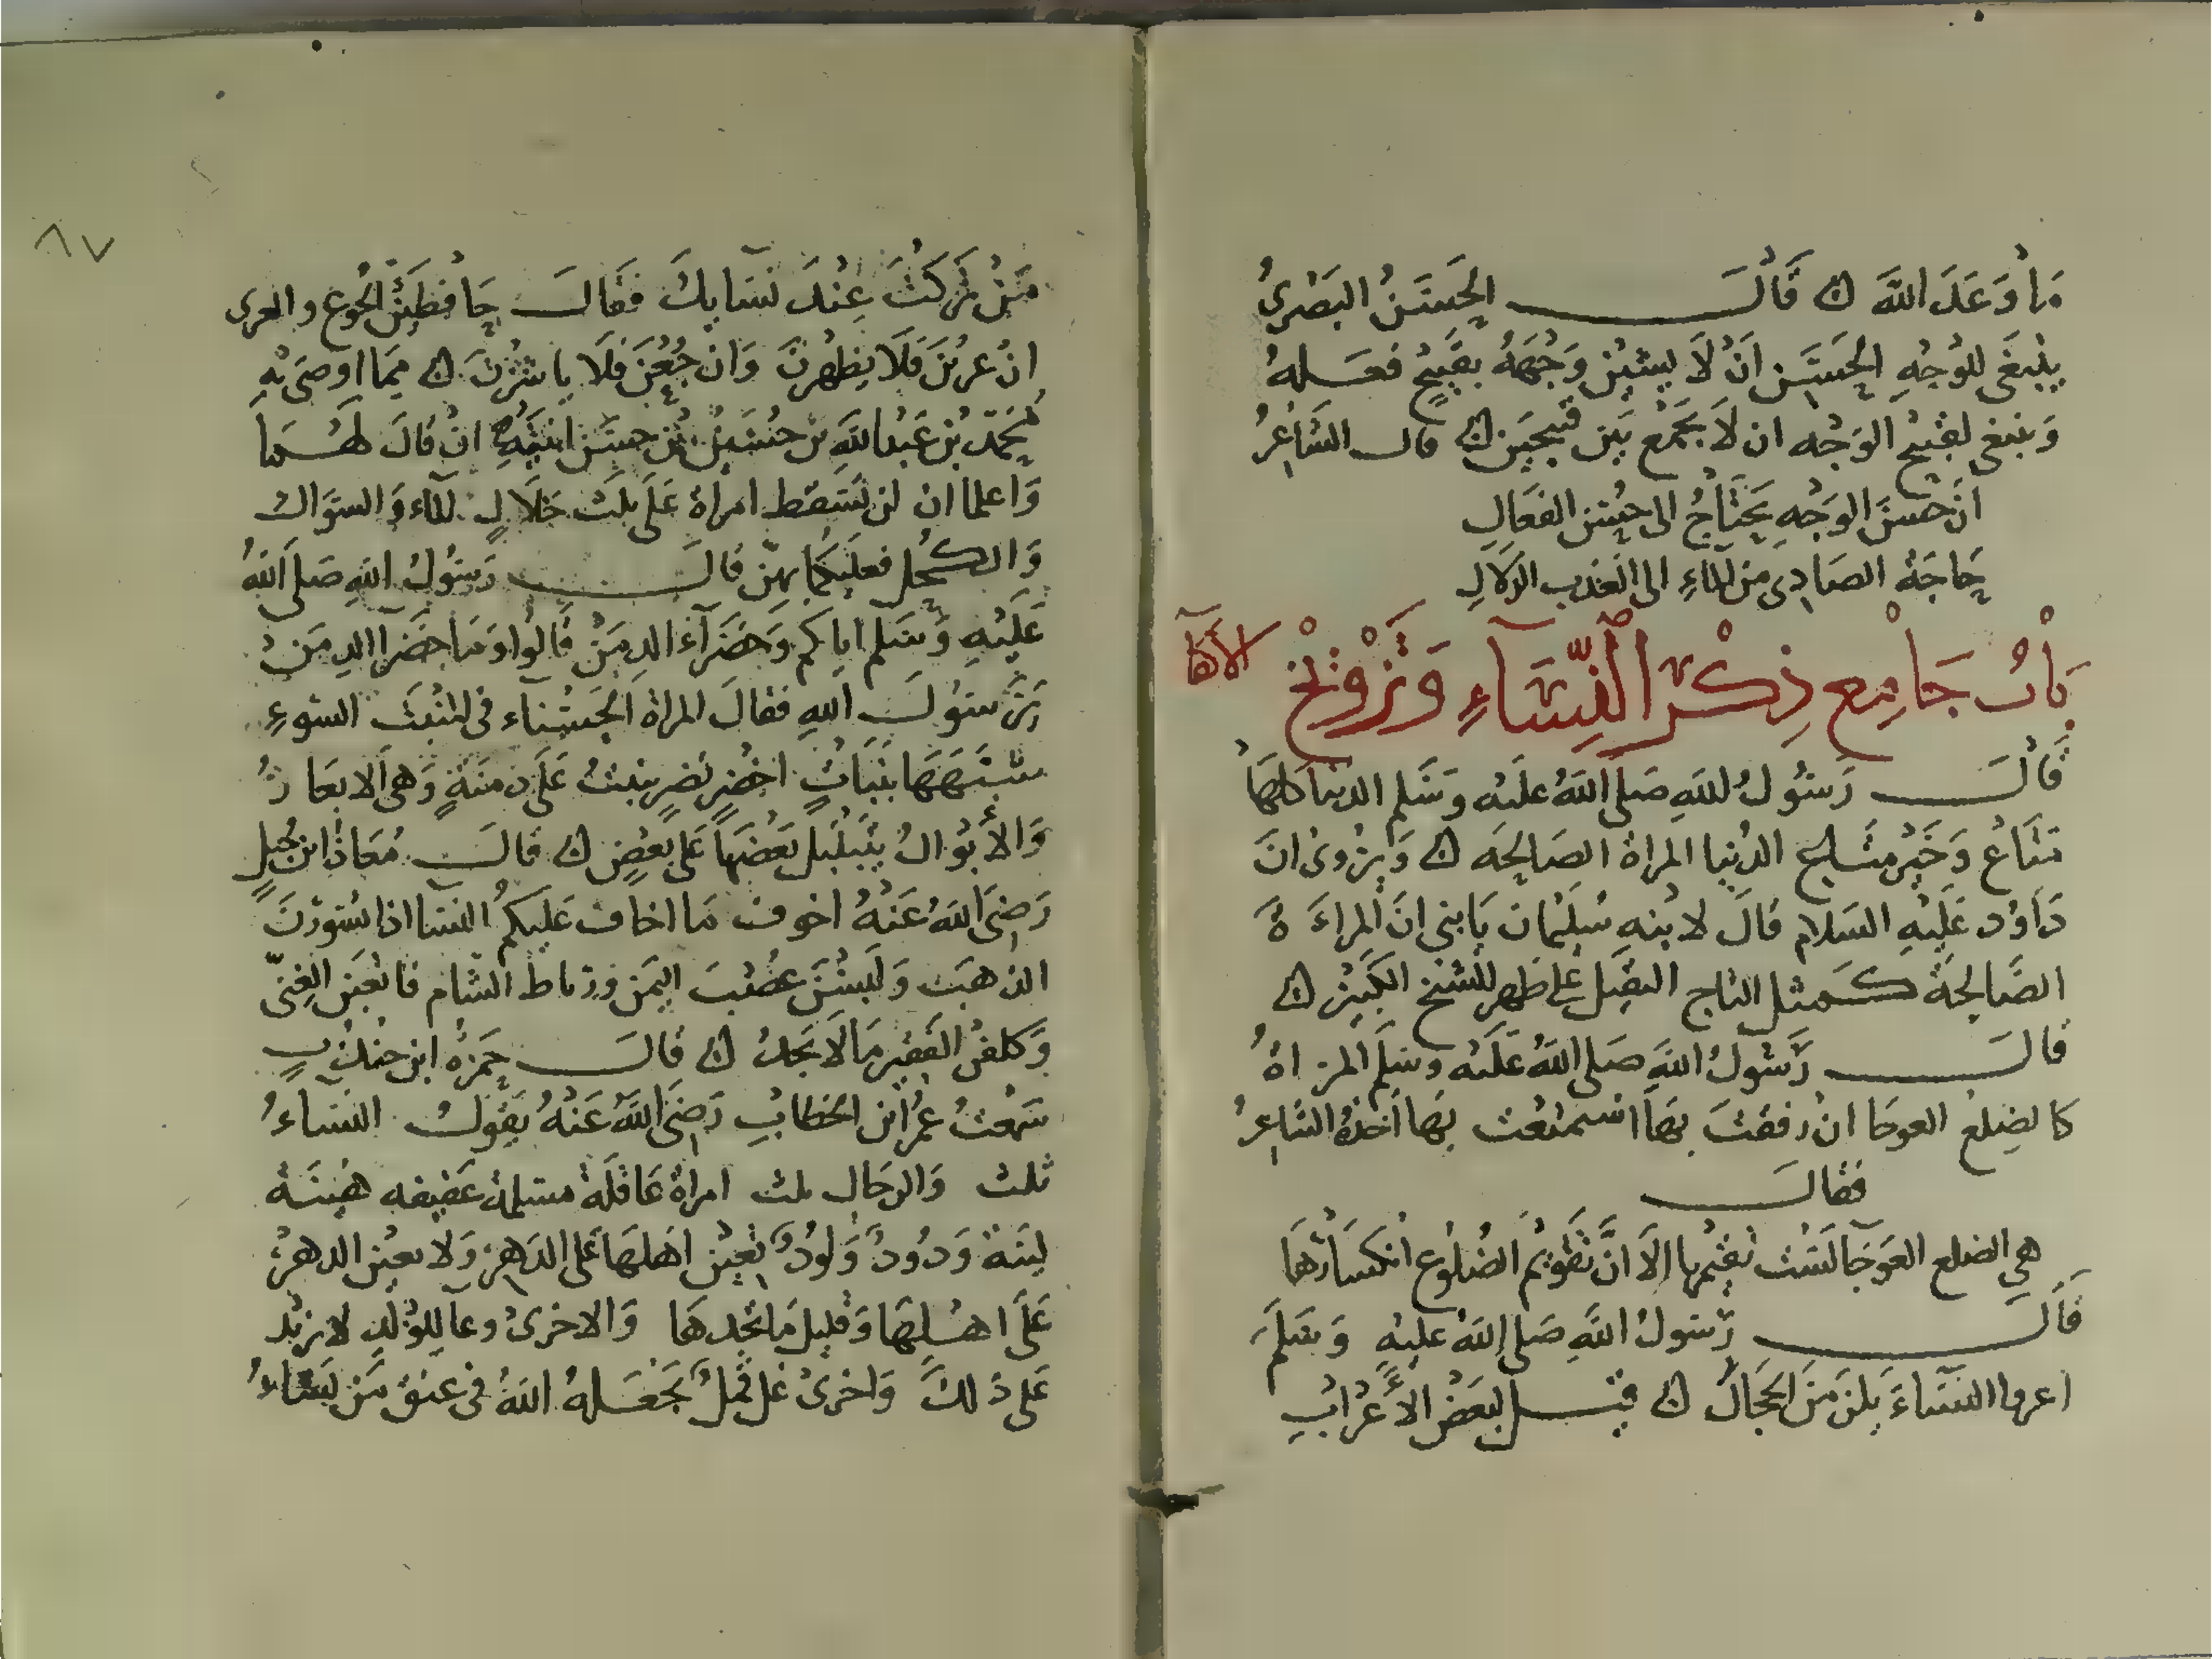 ما وعد الله ن قال الحسن البصرى
ينبغى للوجه الحسن ان لا يشين وجهه بقبيح فعله
وينبغى لقبيح الوجه ان لا يجمع بين قبيحين ن قال الشاعر
ان حسن الوجه يحتاج الى حسن الفعال
حاجة الصادى من الماء الى العذب الزلال
باب جامع ذكر النساء وتزويج الاكفا
قال رسول الله صلى الله عليه وسلم الدنيا كلها
متاع وخير متاع الدنيا المراة الصالحه ن ويروى ان
داود عليه السلام قال لابنه سليمان يا بنى ان المراءة
الصالحة كمثل التاج الثقيل على ظهر للشيخ الكبير ن
قال رسول الله صلى الله عليه وسلم المراة
كالضلع العوجا ان رفقت بها استمتعت بها اخذه الشاعر
فقال
هي الضلع العوجا لست تقيمها الا ان تقويم الضلوع انكسارها
قال رسول الله صلى الله عليه وسلم
اعروا النساء يلزمن الحجال ن قيل لبعض الأعراب
٨٧
من تركت عند نسايك فقال حافظين الجوع والعرى
ان عرين فلا يظهرن وان جعن فلا ياشرن ن مما اوصى به
محمد بن عبد الله بن حسين بن حسن ابنتيه ان قال لهما
واعلما ان لن تسقط امراة على ثلث خلال للماء والسواك
والكحل فعليكما بهن قال رسول الله صلى الله
عليه وسلم اياكم وخضرآء الدمن قالوا وما خضرا الدمن
يرسول الله فقال المراة الحسناء فى المنبت السوء
شبهها بنبات اخضر نضر ينبت على دمنة وهى الابعار
والأبوال يتلبل بعضها على بعض ن قال معاذ ابن جبل
رضى الله عنه اخوف ما اخاف عليكم النسا اذا سورن
الذهب ولبسن عصب اليمن ورياط الشام فاتعبن الغنى
وكلفن الفقير ما لا يجد ن قال حمزه ابن جندب
سمعت عمر ابن الخطاب رضى الله عنه يقول النساء
ثلث والرجال ثلث امراة عاقلة مسلمة عفيفه هينة
لينة ودود ولود تعين اهلها على الدهر ولا تعين الدهر
على اهلها وقليل ما تجدها والاخرى وعا للولد لا تزيد
على ذلك واخرى غل قمل يجعله الله فى عنق من يشاء